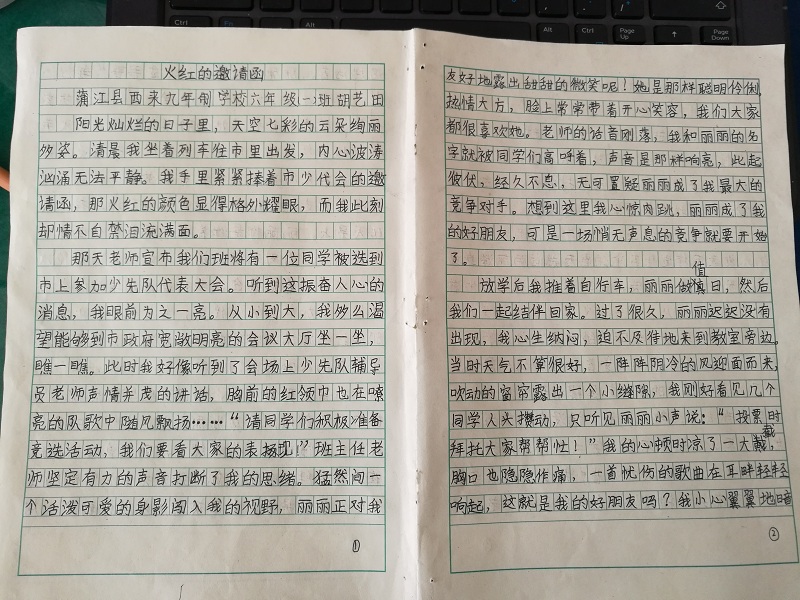 火红的邀请函
蒲江县西来九年制学校六年级一班胡艺田
阳光灿烂的日子里，天空七彩的云朵绚丽
多姿。清晨我坐着列车往市里出发，内心波涛
汹涌无法平静。我手里紧紧捧着市少代会的邀
请函，那火红的颜色显得格外耀眼，而我此刻
却情不自禁泪流满面。
那天老师宣布我们班将有一位同学被选到
市上参加少先队代表大会。听到这振奋人心的
消息，我眼前为之一亮。从小到大，我多么渴
望能够到市政府宽敞明亮的会议大厅坐一坐，
瞧一瞧。此时我好像听到了会场上少先队辅导
员老师声情并茂的讲话，胸前的红领巾也在嘹
亮的队歌中随风飘扬……“请同学们积极准备
竞选活动，我们要看大家的表现！”班主任老
师坚定有力的声音打断了我的思绪。猛然间一
个活泼可爱的身影闯入我的视野，丽丽正对我
①
友好地露出甜甜的微笑呢！她是那样聪明伶俐，
热情大方，脸上常常带着开心笑容，我们大家
都很喜欢她。老师的话音刚落，我和丽丽的名
字就被同学们高呼着，声音是那样响亮，此起
彼伏，经久不息，无可置疑丽丽成了我最大的
竞争对手。想到这里我心惊肉跳，丽丽成了我
的好朋友，可是一场悄无声息的竞争就要开始
了。
放学后我推着自行车，丽丽做值日，然后
我们一起结伴回家。过了很久，丽丽迟迟没有
出现，我心生纳闷，迫不及待地来到教室旁边。
当时天气不算很好，一阵阵阴冷的风迎面而来，
吹动的窗帘露出一个小缝隙，我刚好看见几个
同学人头攒动，只听见丽丽小声说：“投票时
拜托大家帮帮忙！”我的心顿时凉了一大截，
胸口也隐隐作痛，一首忧伤的歌曲在耳畔轻轻
响起，这就是我的好朋友吗？我小心翼翼地暗
②